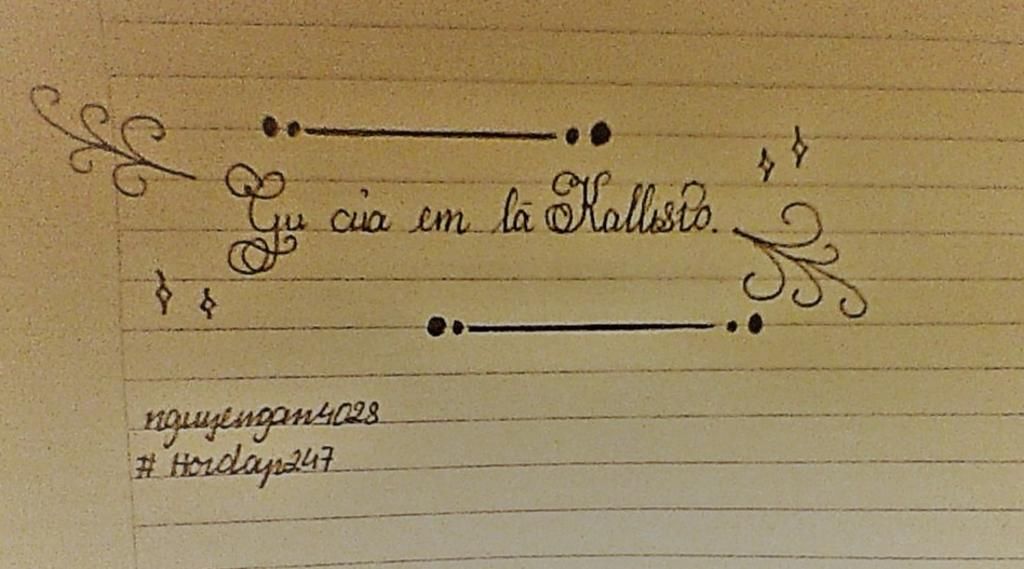 Gu của em là Kallisto.
nguyengan4028
# Hoidap247